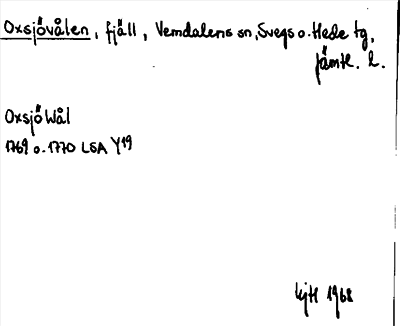 Oxsjövålen, fjäll, Vemdalens sn, Svegs o. Hede tg,
Jämtl. l.
Oxsjö Wål
1769 o. 1770 LSA Y19
1968